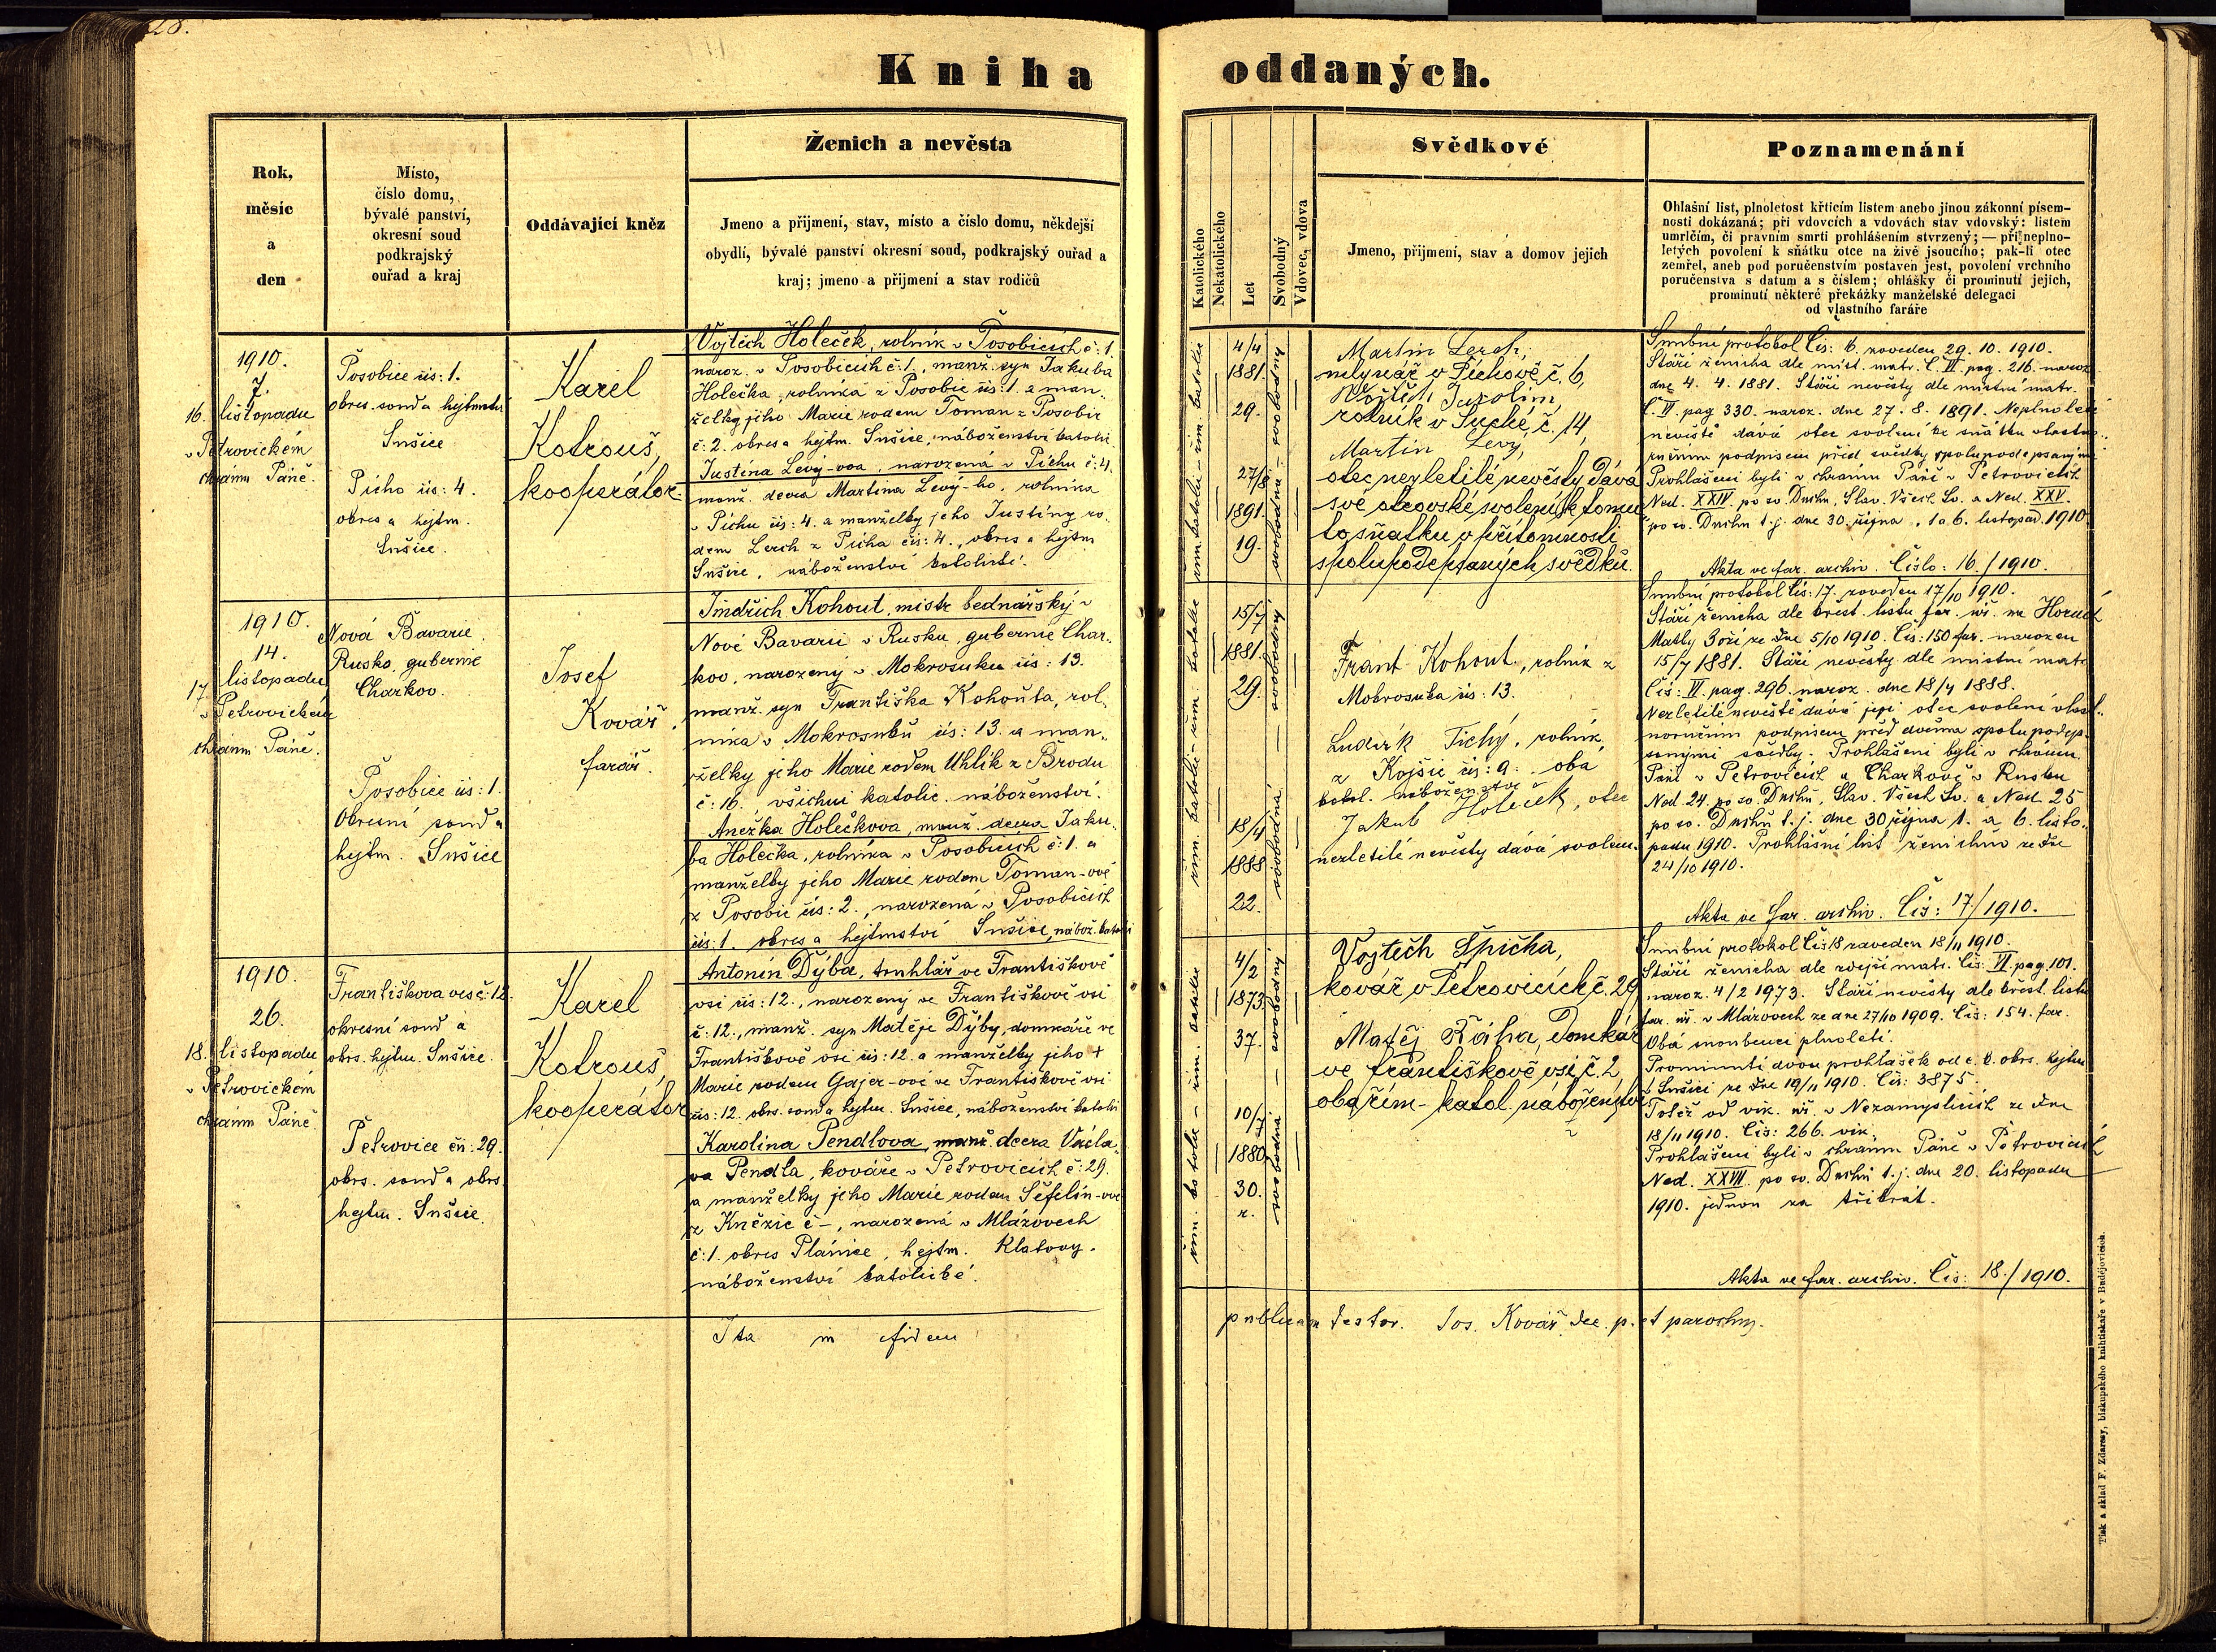 28.
Kniha oddaných.
Rok,
měsíc
a
den
Místo,
číslo domu,
bývalé panství,
okresní soud
podkrajský
ouřad a kraj
Oddávající kněz
Ženich a nevěsta
Jmeno a přijmení, stav, místo a číslo domu, někdejší
obydlí, bývalé panství okresní soud, podkrajský ouřad a
kraj; jmeno a přijmení a stav rodičů
Katolického
Nekatolického
Let
Svobodný
Vdovec, vdova
Svědkové
Jmeno, přijmení, stav a domov jejich
Poznamenání
Ohlašní list, plnoletost křticím listem anebo jinou zákonní písem-
nosti dokázaná; při vdovcích a vdovách stav vdovský: listem
umrlčím, či pravním smrti prohlášením stvrzený; — při neplno-
letých povolení k sňátku otce na živě jsoucího; pak-li otec
zemřel, aneb pod poručenstvím postaven jest, povolení vrchního
poručenstva s datum a s číslem; ohlášky či prominutí jejich,
prominutí některé překážky manželské delegací
od vlastního faráře
1910.
7.
16. listopadu
v Petrovickém
chrámu Páně.
Posobice čís: 1.
okres. soud a hejtmství
Sušice
Pícho čís: 4.
okres a hejtm.
Sušice.
Karel
Kotrouš,
kooperátor.
Vojtěch Holeček, rolník v Posobicích č: 1.
naroz. v Posobicích č: 1., manž. syn Jakuba
Holečka, rolníka z Posobic čís: 1. a man-
želky jeho Marie rodem Toman z Posobic
č: 2. okres a hejtm. Sušice, náboženství katoli.
Justina Levý-ova, narozená v Píchu č: 4.
manž. dcera Martina Levý-ho, rolníka
v Píchu čís: 4. a manželky jeho Justiny ro-
dem Lerch z Pícha čís: 4., okres a hejtm
Sušice, náboženství katolické.
řím. katolic - řím. katolic
4/4
1881.
29.
27/8
1891.
19.
svobodná - svobodný
Martin Lerch,
mlynář v Píchově č. 6,
Vojtěch Jarolím,
rolník v Suché, č. 14,
Martin Levý,
otec nezletilé nevěsty dává
své otcovské svolení k tomu
to sňatku v přítomnosti
spolupodepsaných svědků.
Snubní protokol Čís: 16. zaveden 29. 10. 1910.
Stáří ženicha dle míst. matr. Č. VI. pag. 216. naroz
dne 4. 4. 1881. Stáří nevěsty dle místní matr.
Č. VI. pag 330. naroz. dne 27. 8. 1891. Neplnoleté
nevěstě dává otec svolení ke sňátku vlastno-
ručním podpisem před svědky spolupodepsanými
Prohlášeni byli v chrámu Páně v Petrovicích
Ned. XXIV. po sv. Duchu, Slav. Všech Sv. a Ned. XXV.
po sv. Duchu t. j. dne 30. října, 1 a 6. listopad. 1910
Akta ve far. archiv. Číslo: 16./1910.
1910.
14.
17. listopadu
v Petrovickém
chrámu Páně.
Nová Bavarie
Rusko, gubernie
Charkov.
Posobice čís: 1.
Okresní soud a
hejtm. Sušice
Josef
Kovář,
farář.
Jindřich Kohout, mistr bednářský v
Nové Bavarii v Rusku, gubernie Char-
kov, narozený v Mokrosuku čís: 13.
manž. syn Františka Kohouta, rol-
níka v Mokrosuku čís: 13. a man-
želky jeho Marie rodem Uhlík z Brodu
č: 16., všichni katolic. náboženství.
Anežka Holečkova, manž. dcera Jaku-
ba Holečka, rolníka v Posobicích č: 1. a
manželky jeho Marie rodem Toman-ové
z Posobic čís: 2., narozená v Posobicích
čís: 1. okres a hejtmství Sušice, nábož. katoli
řím. katolic - řím. katolic
15/7
1881.
29.
18/4
1888
22.
svobodná - svobodný
Frant. Kohout, rolník z
Mokrosuka čís: 13.
Ludvík Tichý, rolník,
z Kojšic čís: 9. oba
katol. náboženství
Jakub Holeček, otec
nezletilé nevěsty dává svolení.
Snubní protokol Čís: 17. zaveden 17/10 1910.
Stáří ženicha dle křest. listu far. úř. na Horách
Matky Boží ze dne 5/10 1910. Čís: 150 far. narozen
15/7 1881. Stáří nevěsty dle místní matr.
Čís: VI. pag. 296. naroz. dne 18/4 1888.
Nezletilé nevěstě dává její otec svolení vlast-
noručním podpisem před dvěma spolu podep-
sanými svědky. Prohlášeni byli v chrámu
Páně v Petrovicích a Charkově v Rusku
Ned. 24. po sv. Duchu, Slav. Všech Sv. a Ned. 25
po sv. Duchu t. j. dne 30 října 1. a 6. listo-
padu 1910. Prohlášní list ženichův ze dne
24/10 1910.
Akta ve far. archiv. Čís: 17/1910.
1910.
26.
18. listopadu
v Petrovickém
chrámu Páně.
Františkova ves č: 12.
okresní soud a
okrs. hejtm. Sušice.
Petrovice čís: 29.
okrs. soud a okrs.
hejtm. Sušice.
Karel
Kotrouš,
kooperátor
Antonín Dýba, truhlář ve Františkově
vsi čís: 12., narozený ve Františkově vsi
č: 12., manž. syn Matěje Dýby, domkáře ve
Františkově vsi čís: 12. a manželky jeho †
Marie rodem Gajer-ové ve Františkově vsi
čís: 12. okrs. soud a hejtm. Sušice, náboženství katoli
Karolina Pendlova, manž. dcera Václa-
va Pendla, kováře v Petrovicích č: 29.
a manželky jeho Marie rodem Šefelín-ové
z Kněžic č -, narozená v Mlázovech
č: 1. okres Plánice, hejtm. Klatovy.
náboženství katolické.
řím. katolic - řím. katolic
4/2
1873.
37.
10/7
1880
30.
r.
svobodná - svobodný
Vojtěch Špička,
kovář v Petrovicích č. 29
Matěj Řáha, domkář
ve Františkově vsi, č. 2,
oba řím-katol. náboženství
Snubní protokol Čís 18 zaveden 18/11 1910.
Stáří ženicha dle zdejší matr. Čís. VI. pag. 101.
naroz. 4/2 1973. Stáří nevěsty dle křest. listu
far. úř. v Mlázovech ze dne 27/10 1909. Čís: 154. far.
Obá snoubenci plnoletí.
Prominutí dvou prohlášek od c. k. okrs. hejtm
v Sušici ze dne 19/11 1910. Čís: 3875.
Totéž od vik. úř. v Nezamyslicích ze dne
18/11 1910. Čís: 266. vik.
Prohlášeni byli v chrámu Páně v Petrovicích
Ned. XXVII. po sv. Duchu t. j. dne 20. listopadu
1910. jednou za třikrát.
Akta ve far. archiv. Čís: 18./1910.
Ita in fidem publicam testor. Jos. Kovář dec. p. et parochus.
Tisk a sklad F. Zdarssy, biskupského knihtiskaře v Budějovicích.